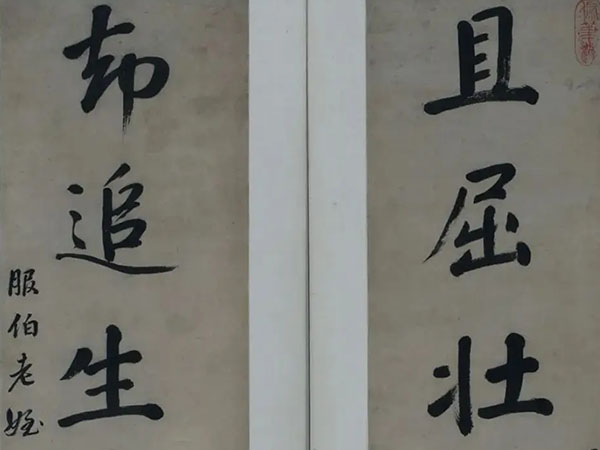 且屈壮
却追生
服伯老姪